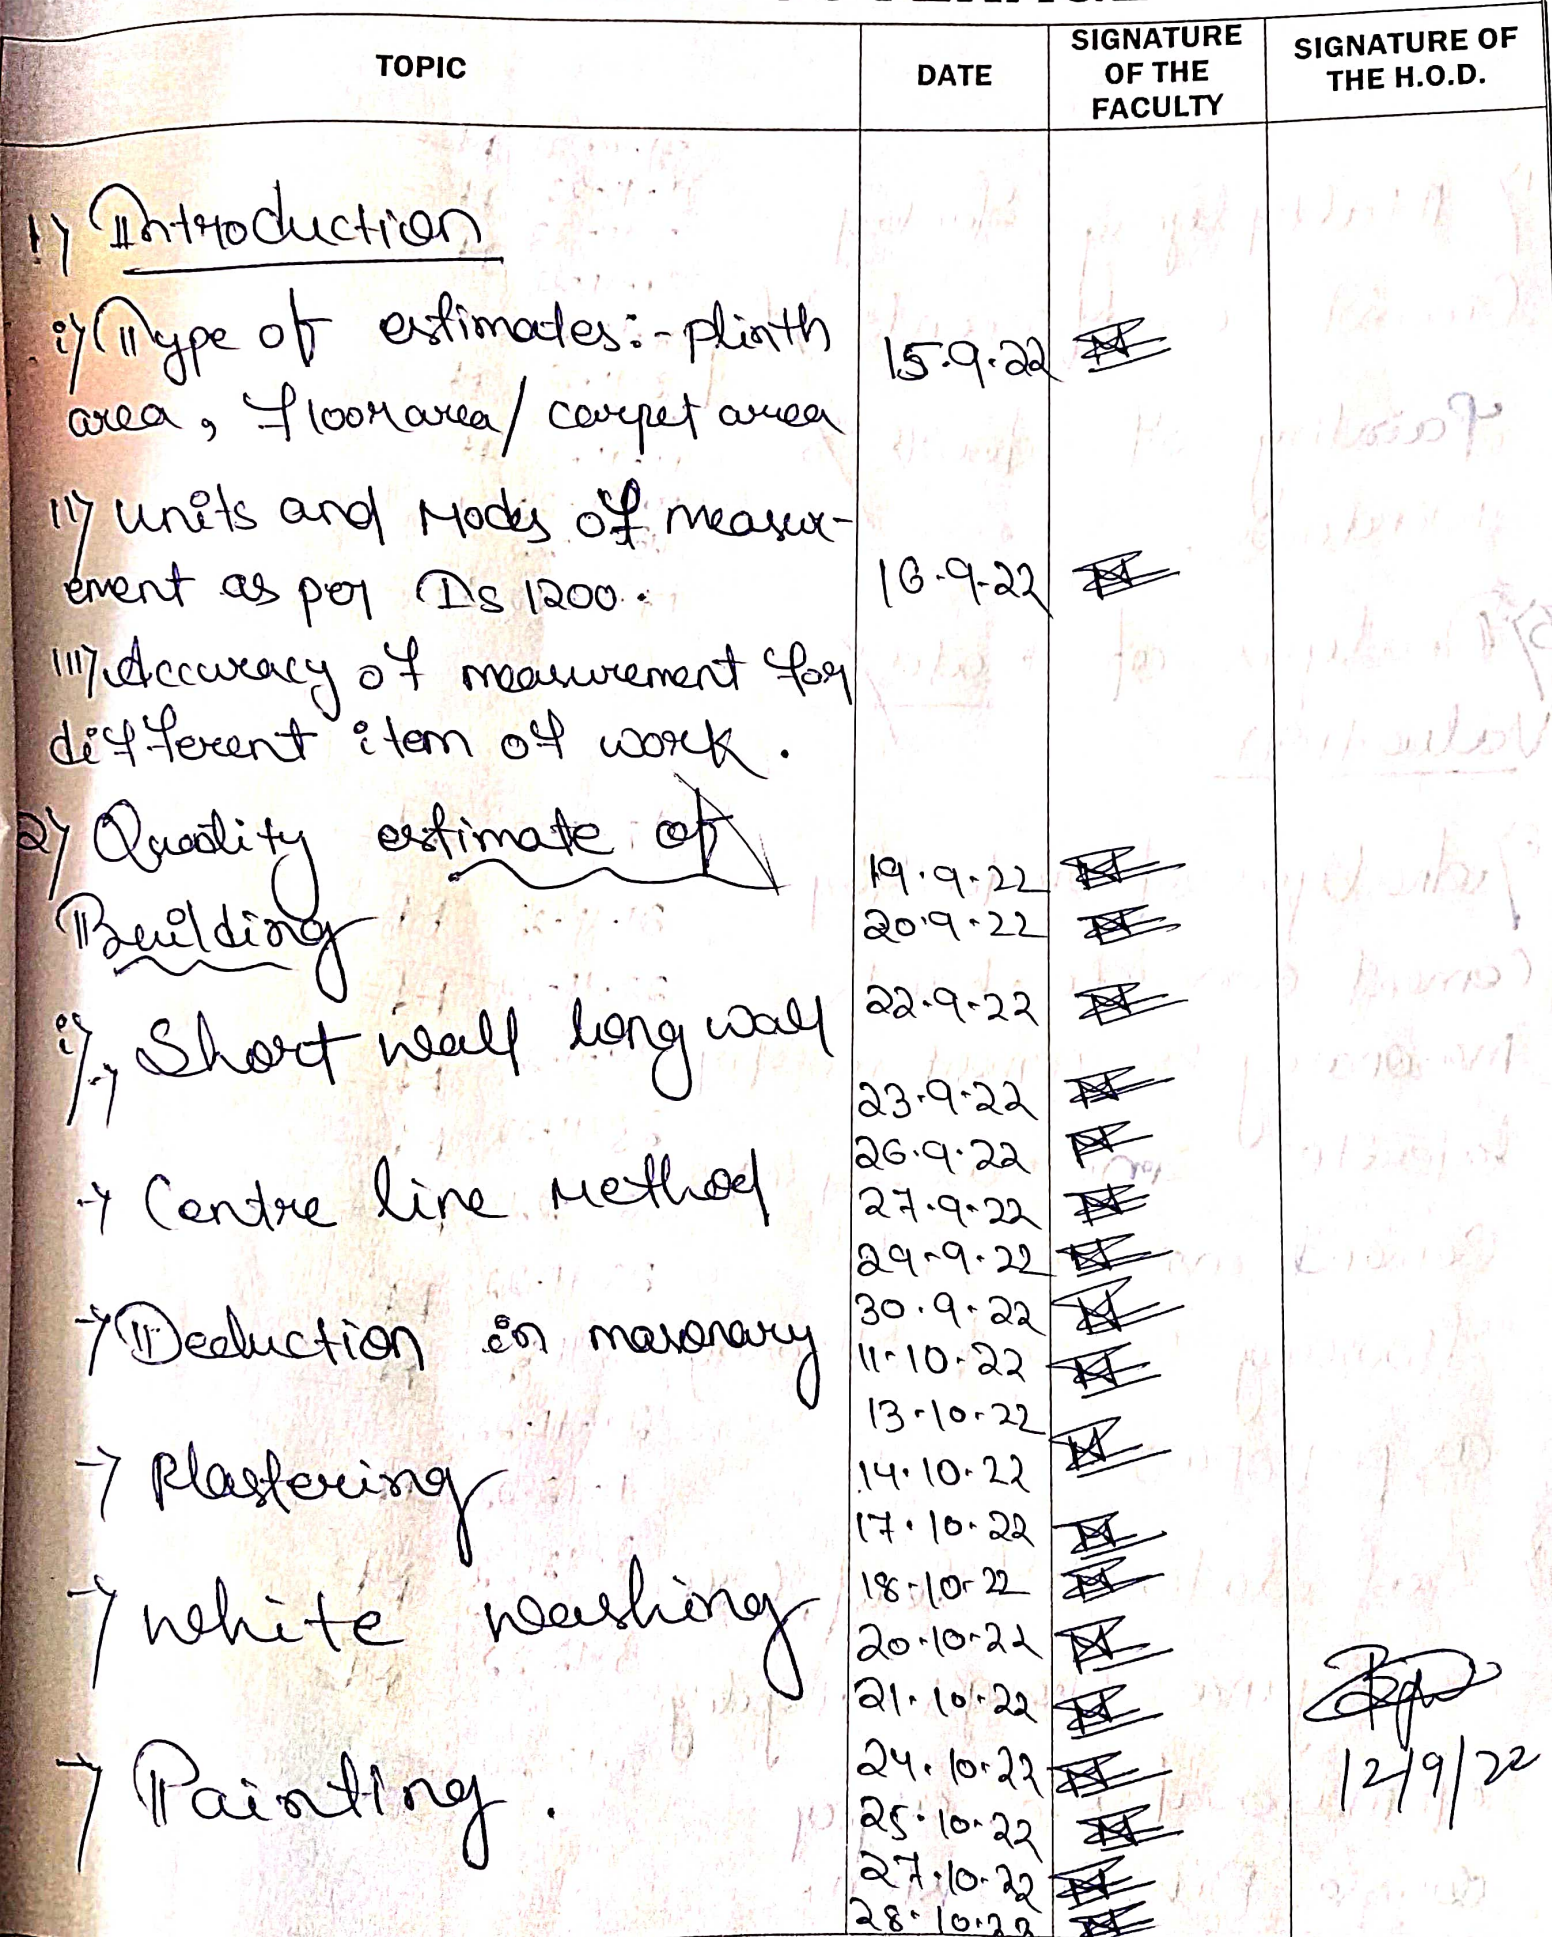 TOPIC
DATE
SIGNATURE OF THE FACULTY
SIGNATURE OF THE H.O.D.
1) Introduction
i) Type of estimates:- plinth
area, floor area/ carpet area
15.9.22
ii) units and Modes of measur-
ement as per Is 1200.
16.9.22
iii) Accuracy of measurement for
different item of work.
2) Quality estimate of
19.9.22
Building
20.9.22
i) → Short wall long wall
22.9.22
23.9.22
26.9.22
→ Centre line Method
27.9.22
29.9.22
30.9.22
→ Deduction in masonary
11.10.22
13.10.22
→ Plastering
14.10.22
17.10.22
18.10.22
→ white washing
20.10.22
21.10.22
24.10.22
12/9/22
→ Painting.
25.10.22
27.10.22
28.10.22